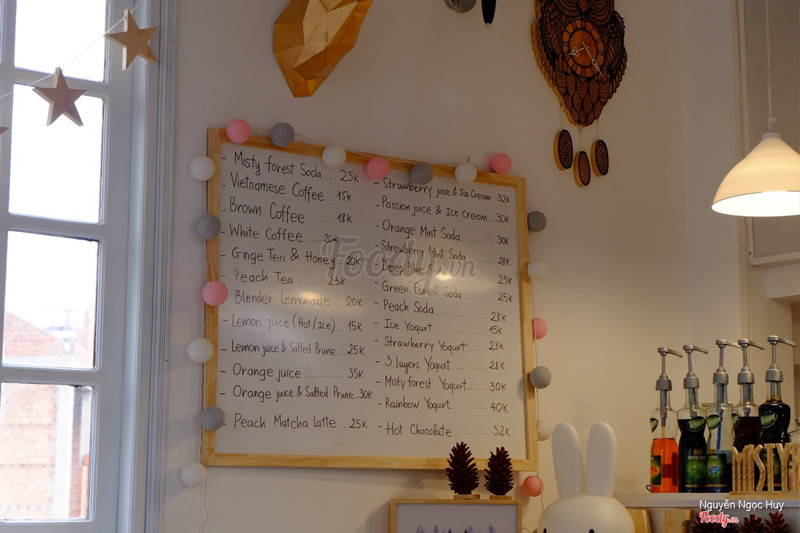 - Misty forest Soda ... 25K
- Vietnamese Coffee ... 15K
- Brown Coffee ... 18K
- White Coffee ... 20K
- Ginge Tea & Honey ... 20K
- Peach Tea ... 23K
- Blender Lemonade ... 20K
- Lemon juice (Hot/Ice) 15K
- Lemon juice & Salted Prune ... 25K
- Orange juice ... 35K
- Orange juice & Salted Prune ... 30K
- Peach Matcha latte ... 25K
- Strawberry juice & Ice Cream ... 32K
- Passion juice & Ice Cream ... 30K
- Orange Mint Soda ... 30K
- Strawberry Mint Soda ... 28K
- Deep Blue ... 25K
- Green Forest Soda ... 25K
- Peach Soda ... 28K
- Ice Yogurt ... 15K
- Strawberry Yogurt ... 23K
- 3 layers Yogurt ... 28K
- Misty forest Yogurt ... 30K
- Rainbow Yogurt ... 40K
- Hot Chocolate ... 32K
Foody.vn
Nguyễn Ngọc Huy
Foody.vn